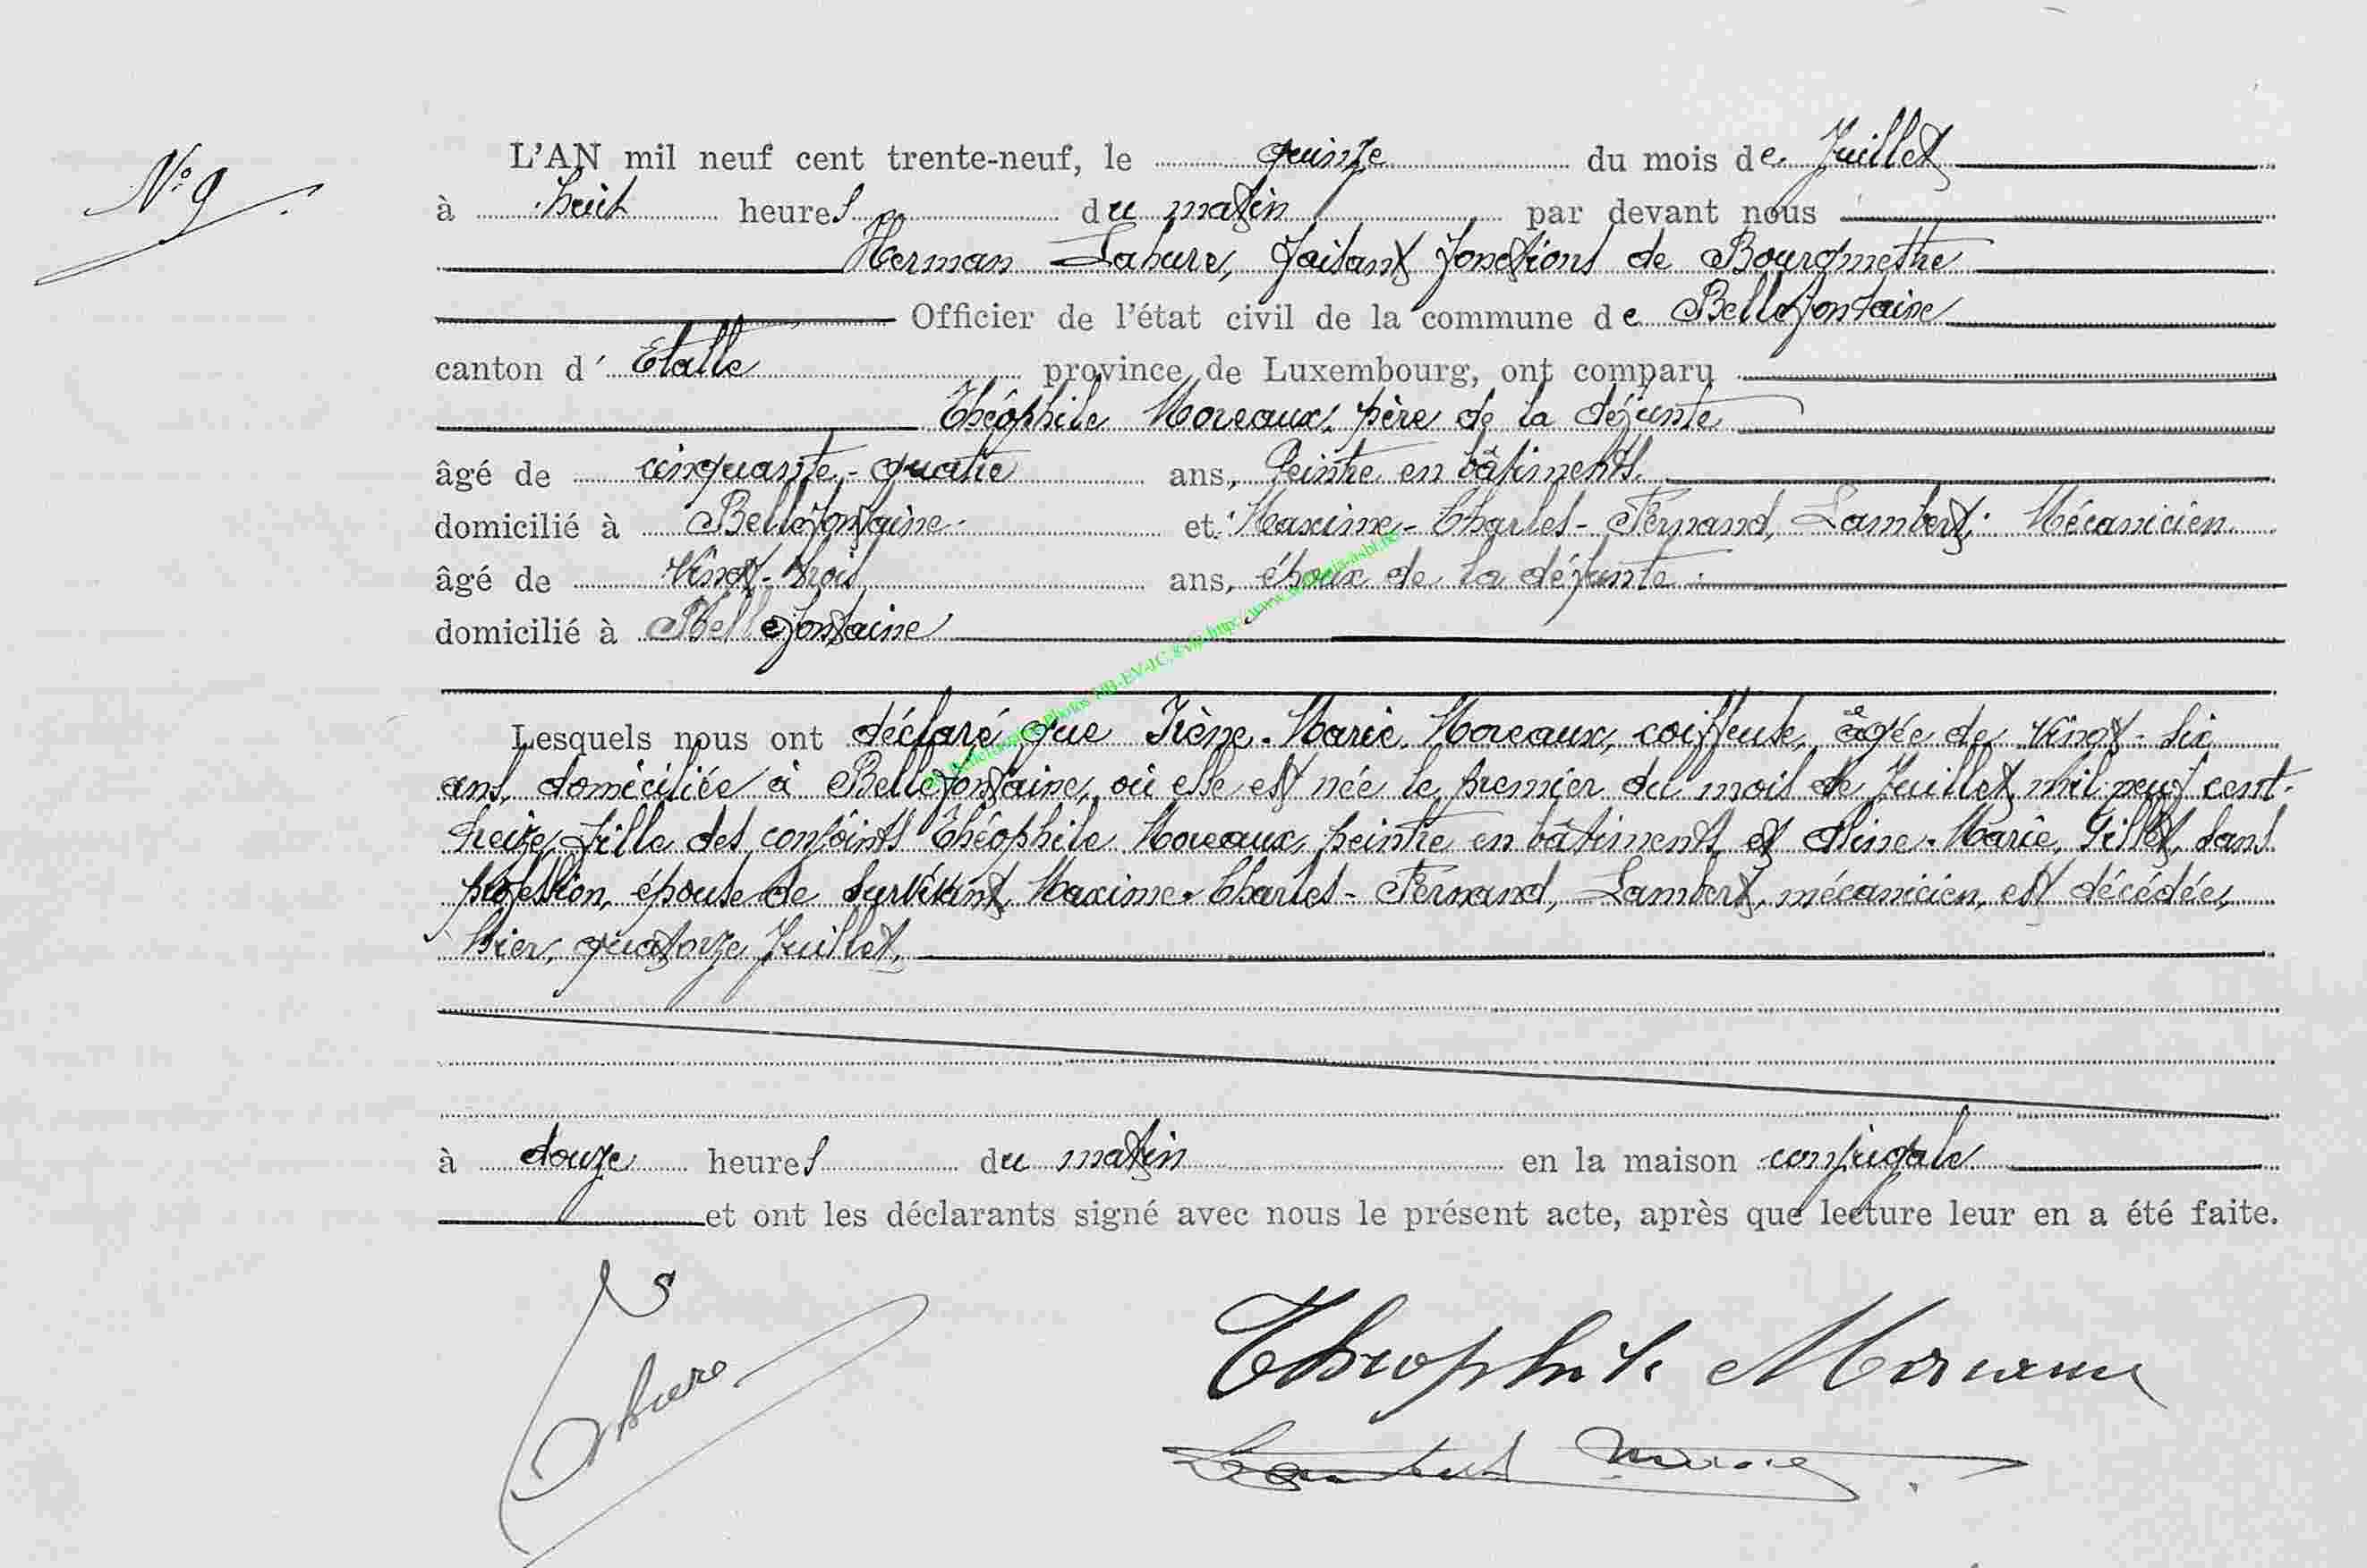 N° 9
L'AN mil neuf cent trente-neuf, le quinze du mois de Juillet
à huit heures du matin par devant nous
Herman Lahure, faisant fonctions de Bourgmestre
Officier de l'état civil de la commune de Bellefontaine
canton d' Etalle province de Luxembourg, ont comparu
Théophile Moreaux, père de la défunte
âgé de cinquante-quatre ans, Peintre en bâtiments
domicilié à Bellefontaine et Maxime-Charles-Fernand, Lambert, Mécanicien
âgé de vingt-trois ans, époux de la défunte
domicilié à Bellefontaine
Lesquels nous ont déclaré que Irène-Marie, Moreaux, coiffeuse, âgée de vingt-six
ans, domiciliée à Bellefontaine, où elle est née le premier du mois de Juillet mil neuf cent-
treize, fille des conjoints Théophile Moreaux, peintre en bâtiments et Aline-Marie, Gillet, sans
profession, épouse de survivant, Maxime-Charles-Fernand, Lambert, mécanicien, est décédée,
hier, quatorze Juillet,
à douze heures du matin en la maison conjugale
et ont les déclarants signé avec nous le présent acte, après que lecture leur en a été faite.
Lahure
Théophile Moreaux
Lambert